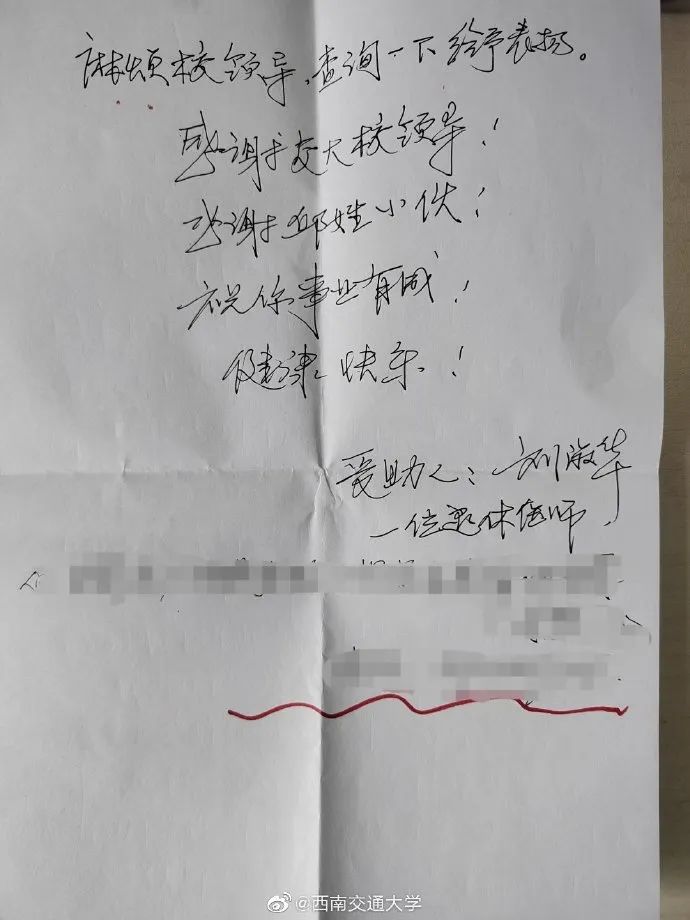 麻烦校领导,查询一下给予表扬。
感谢交大校领导!
感谢邱姓小伙!
祝你事业有成!
健康快乐!
受助人:刘淑华
一位退休医师
@西南交通大学